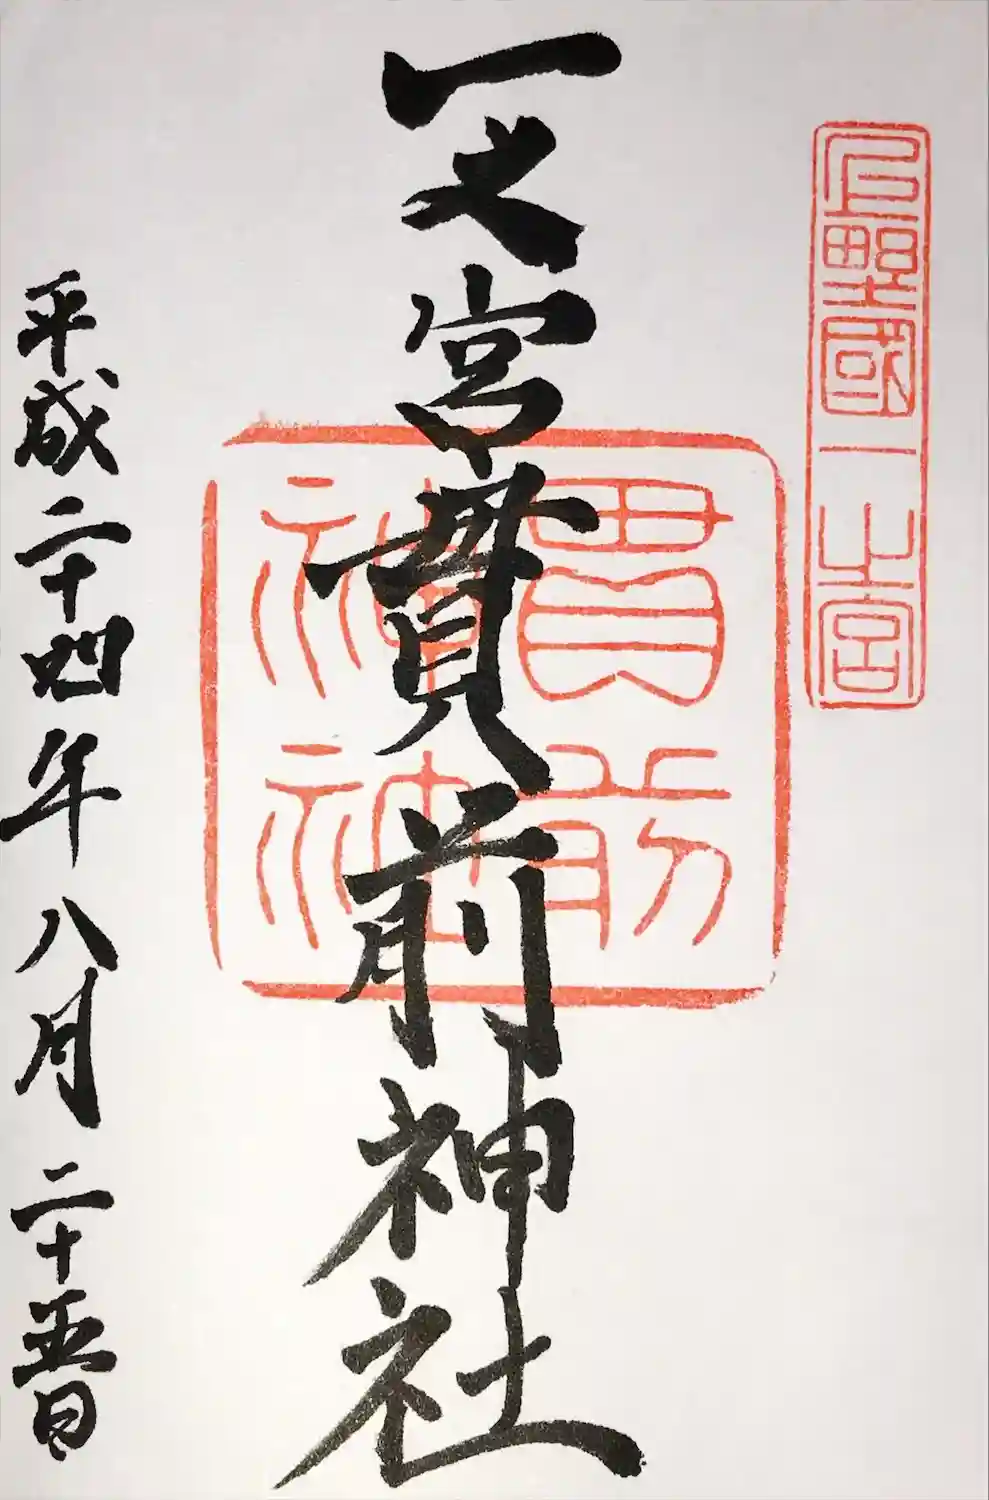 上野國一之宮
一之宮貫前神社
貫前
神
平成二十四年八月二十五日